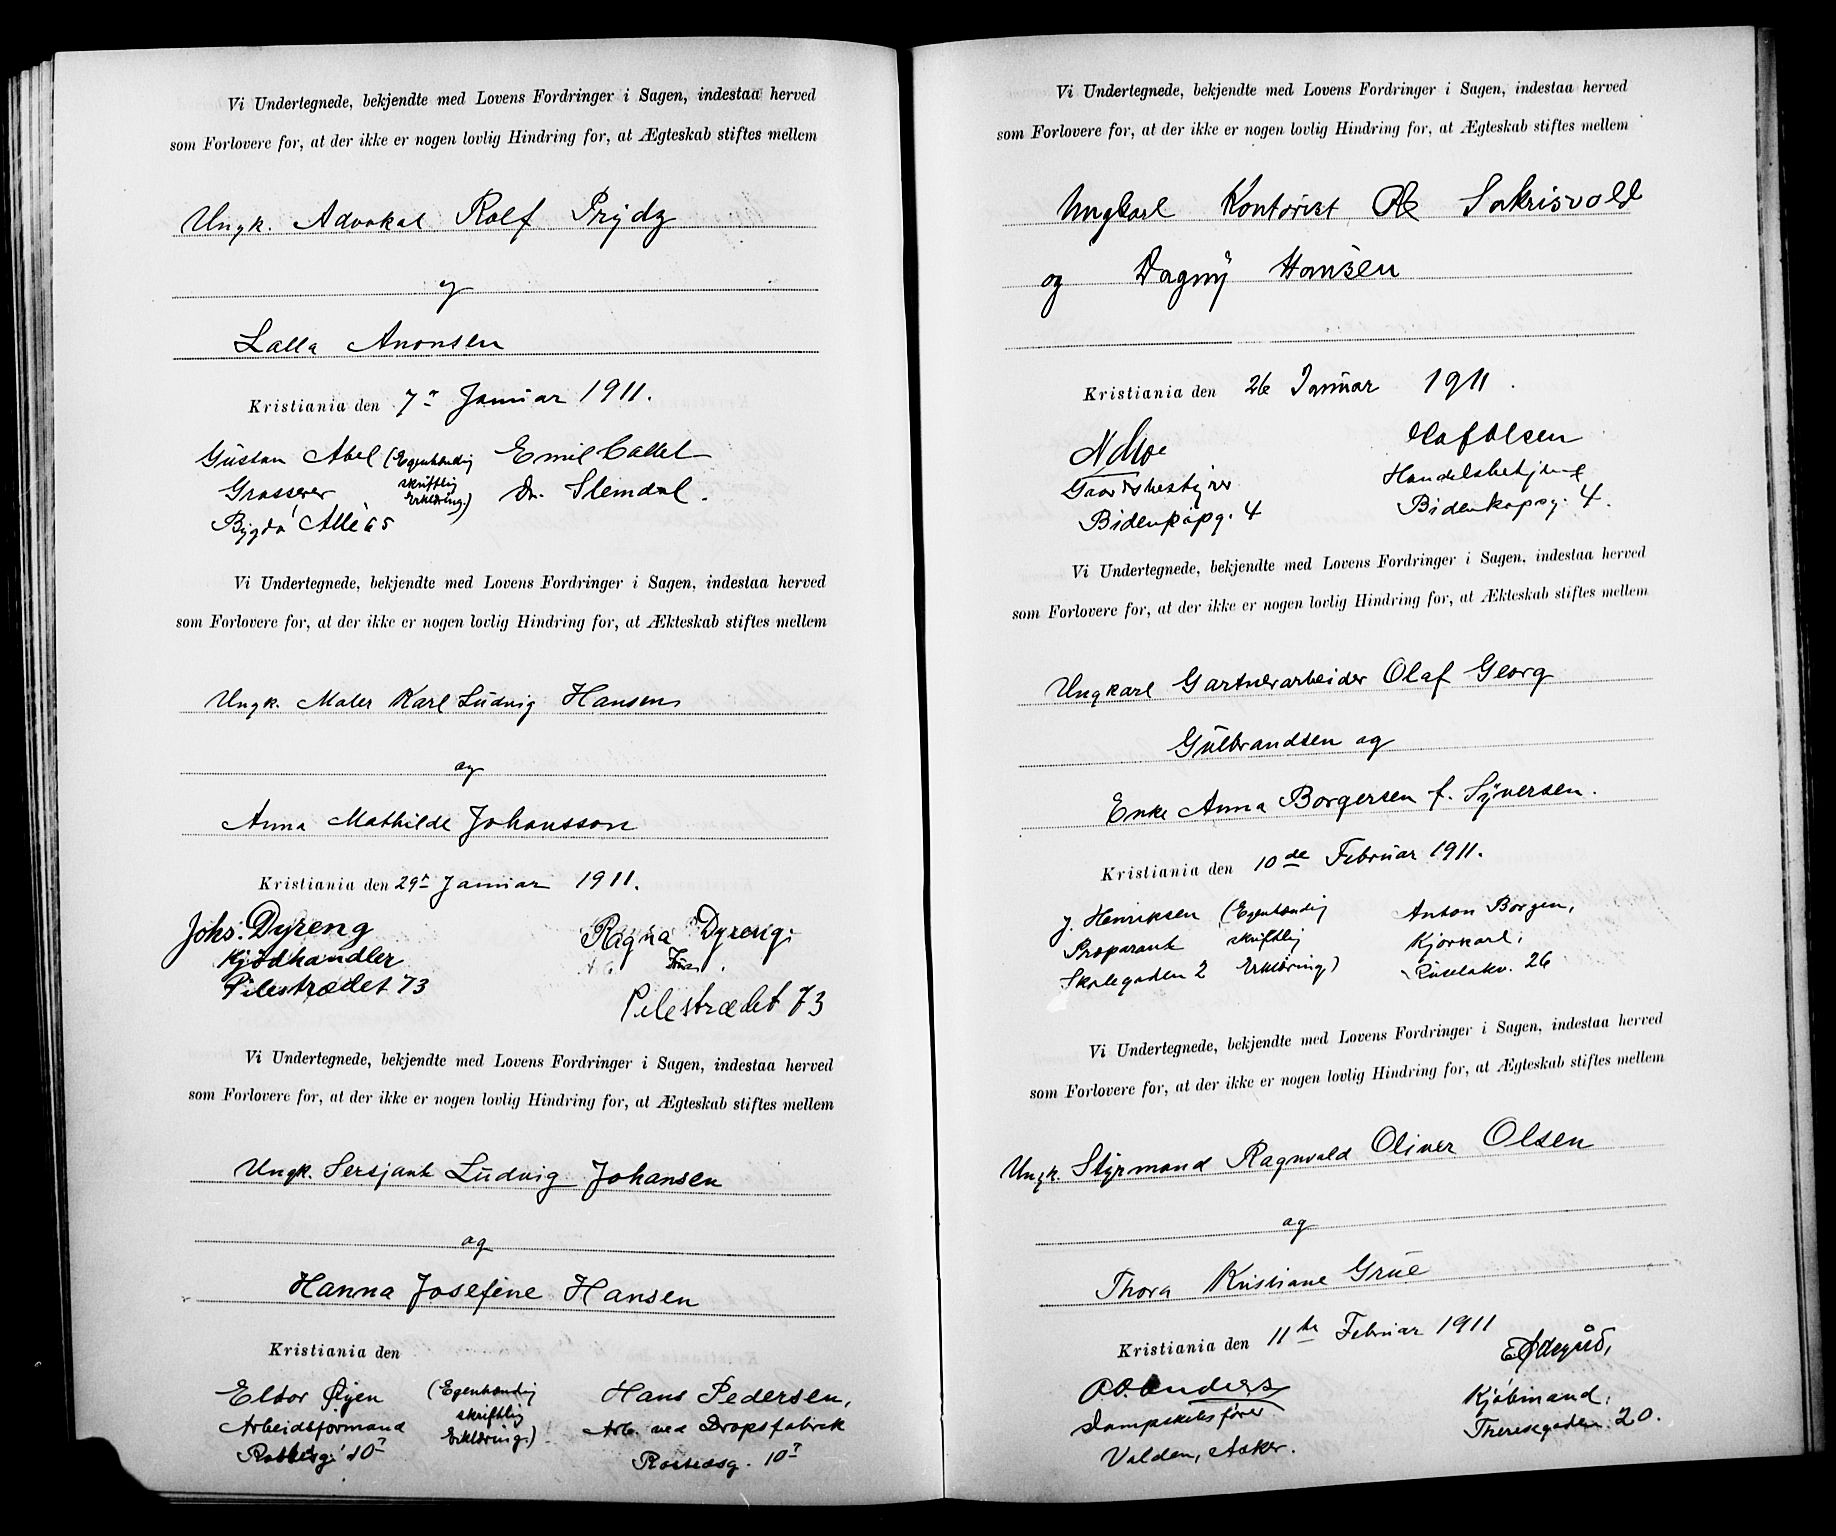 Vi Undertegnede, bekjendte med Lovens Fordringer i Sagen, indestaa herved
som Forlovere for, at der ikke er nogen lovlig Hindring for, at Ægteskab stiftes mellem
Ungk. Advokat Rolf Prydz
og
Lalla Anonsen
Kristiania den 7de Januar 1911.
Gustav Abel (Egenhændig
Grosserer skriftlig
Bygdø Allé 65 Erklæring.)
Emil Callet
Dr. Slemdal.
Vi Undertegnede, bekjendte med Lovens Fordringer i Sagen, indestaa herved
som Forlovere for, at der ikke er nogen lovlig Hindring for, at Ækteskab stiftes mellem
Ungk. Maler Karl Ludvig Hansen
og
Anna Mathilde Johansson
Kristiania den 29de Januar 1911.
Johs. Dyreng
Kjødhandler
Pilestrædet 73
Ragna Dyreng.
Frue.
Pilestrædet 73
Vi Undertegnede, bekjendte med Lovens Fordringer i Sagen, indestaa herved
som Forlovere for, at der ikke er nogen lovlig Hindring for, at Ægteskab stiftes mellem
Ungk. Sersjant Ludvig Johansen
og
Hanna Josefine Hansen
Kristiania den
Eldor Øyen (Egenhændig
Arbeidsformand skriftlig
Erklæring.)
Hans Pedersen,
Arb. ved Dropsfabrik
Vi Undertegnede, bekjendte med Lovens Fordringer i Sagen, indestaa herved
som Forlovere for, at der ikke er nogen lovlig Hindring for, at Ægteskab stiftes mellem
Ungkarl Kontorist Sakrisvold
og Dagny Hansen
Kristiania den 26 Januar 1911.
N Moe
Gaardsbestyrer
Bidenkapsg. 4
Olaf Olsen
Handelsbetjent
Bidenkapsg. 4.
Vi Undertegnede, bekjendte med Lovens Fordringer i Sagen, indestaa herved
som Forlovere for, at der ikke er nogen lovlig Hindring for, at Ækteskab stiftes mellem
Ungkarl Gartnerarbeider Olaf Georg
Gulbrandsen og
Enke Anna Borgersen f. Syversen.
Kristiania den 10de Februar 1911.
J. Henriksen (Egenhændig
Præparant skriftlig
Skolegaden 2 Erklæring)
Anton Borgen,
Kjørkarl,
Ruseløkv. 26
Vi Undertegnede, bekjendte med Lovens Fordringer i Sagen, indestaa herved
som Forlovere for, at der ikke er nogen lovlig Hindring for, at Ægteskab stiftes mellem
Ungk. Styrmand Ragnvald Oliver Olsen
og
Thora Kristiane Grue
Kristiania den 11te Februar 1911
Dampskibsfører
Valden, Asker.
E. Ødegård,
Kjøbmand,
Theresegaden 20.